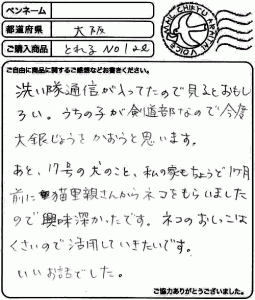 ペンネーム
都道府県 大阪
ご購入商品 とれるNO1 2ℓ
MAN CHIKYU ARAITAI VOICE
ご自由に商品に関するご感想などお書きください。
洗い隊通信が入ってたので見るとおもし
ろい。うちの子が剣道部なので今度
大銀じょうをかおうと思います。
あと、17号の犬のこと、私の家もちょうど1ヶ月
前に猫里親さんからネコをもらいました
ので興味深かったです。ネコのおしっこは
くさいので活用していきたいです。
いいお話でした。
ご協力ありがとうございました。